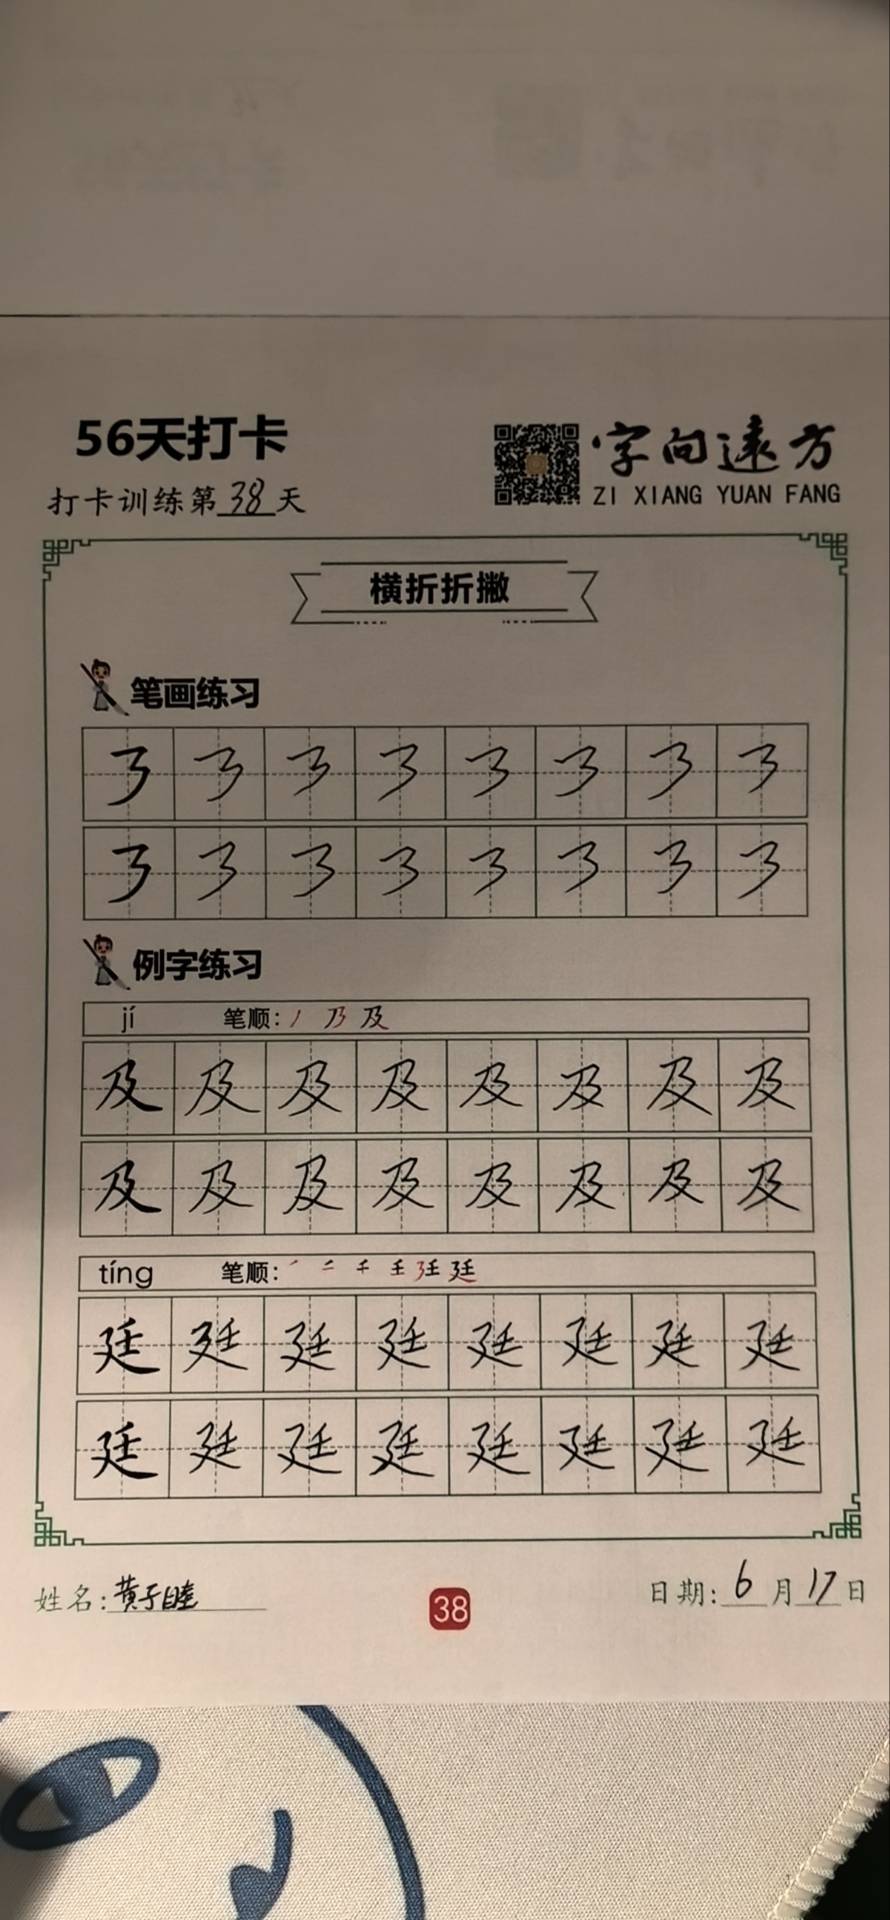 56天打卡
字向远方
ZI XIANG YUAN FANG
打卡训练第38天
横折折撇
笔画练习
例字练习
jí 笔顺：丿 乃 及
及 及 及 及 及 及 及 及
及 及 及 及 及 及 及 及
tíng 笔顺：
廷 廷 廷 廷 廷 廷 廷 廷
廷 廷 廷 廷 廷 廷 廷 廷
姓名：黄子睦
38
日期：6月17日